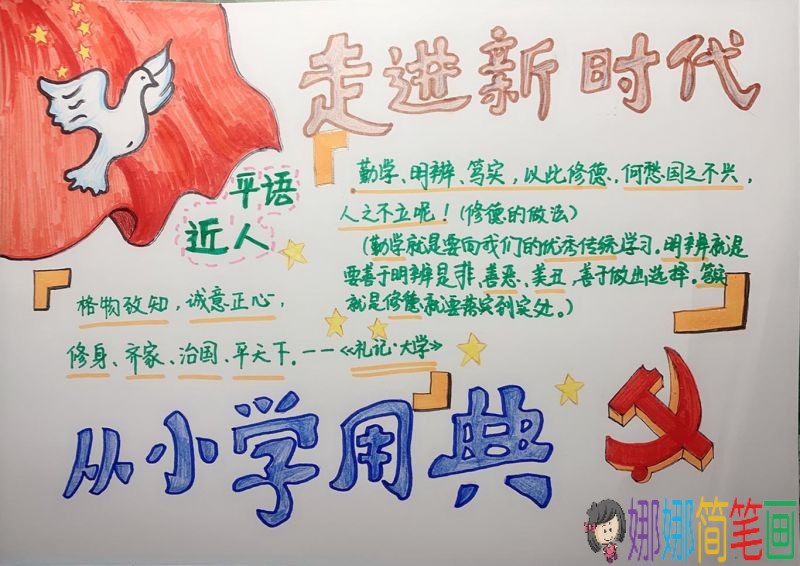 走进新时代
平语
近人
勤学、明辨、笃实，以此修德、何愁国之不兴，
人之不立呢！（修德的做法）
（勤学就是要向我们的优秀传统学习。明辨就是
要善于明辨是非、善恶、美丑，善于做出选择。笃实
就是修德就要落实到实处。）
格物致知，诚意正心，
修身、齐家、治国、平天下。——《礼记·大学》
从小学用典
娜娜简笔画